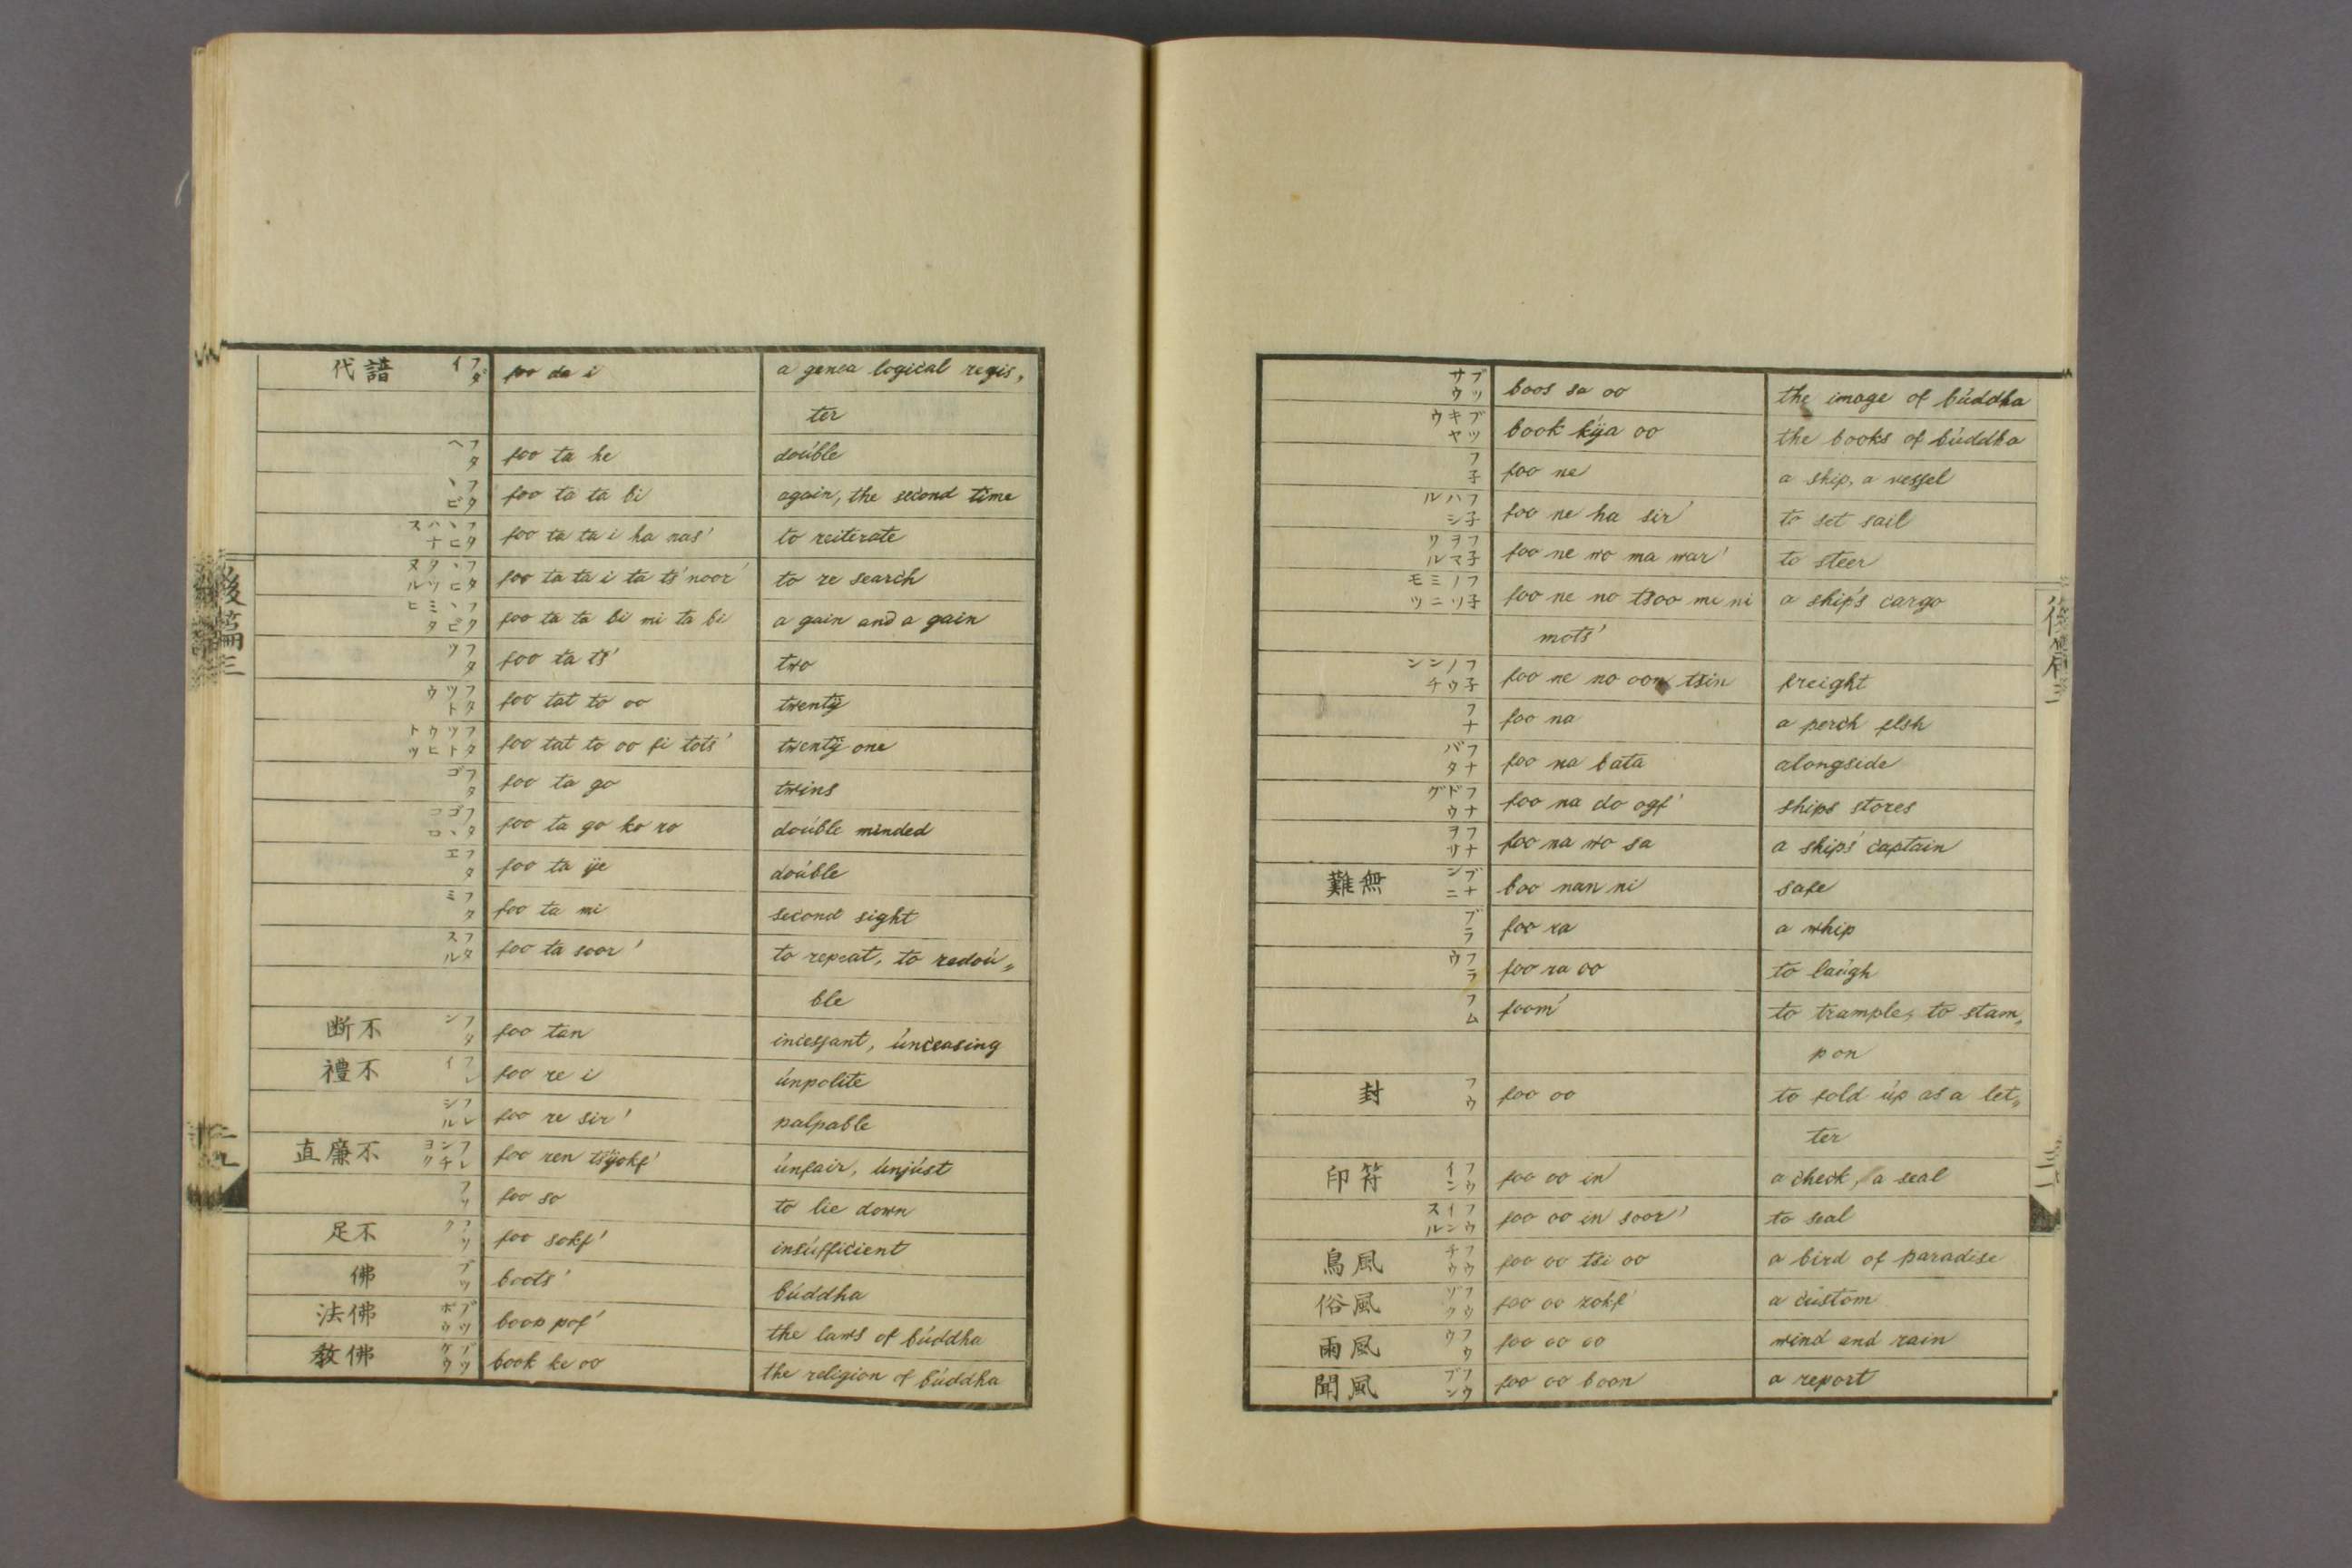 代譜 フダイ foo da i a genea logical regis,
ter
フタヘ foo ta he double
フタヽビ foo ta ta bi again, the second time
フタヽヒハナス foo ta ta i ha nas' to reiterate
フタヽヒタツヌル foo ta ta i ta ts' noor' to re search
フタヽビミタヒ foo ta ta bi mi ta bi a gain and a gain
フタツ foo ta ts' two
フタツトウ foo tat to oo twenty
フタツトウヒトツ foo tat to oo fi tots' twenty one
フタゴ foo ta go twins
フタゴヽコロ foo ta go ko ro double minded
フタエ foo ta ÿe double
フタミ foo ta mi second sight
フタスル foo ta soor' to repeat, to redou„
ble
断不 フタン foo tan incessant, unceasing
禮不 フレイ foo re i unpolite
フレシル foo re sir' palpable
直廉不 フレンチヨク foo ren tsÿokf' unfair, unjust
フソ foo so to lie down
足不 フソク foo sokf' insufficient
佛 ブツ boots' buddha
法佛 ブツポウ boop pof' the laws of buddha
教佛 ブツケウ book ke oo the religion of buddha
後篇三
ブツサウ boos sa oo the image of buddha
ブツキヤウ book kÿa oo the books of buddha
フ子 foo ne a ship, a vessel
フ子ハシル foo ne ha sir' to set sail
フ子ヲマワル foo ne wo ma war' to steer
フ子ノツミニモツ foo ne no tsoo mi ni a ship's cargo
mots'
フ子ノウンチン foo ne no oon tsin freight
フナ foo na a perch fish
フナバタ foo na bata alongside
フナドウグ foo na do ogf' ships stores
フナヲサ foo na wo sa a ships' captain
難無 ブナンニ boo nan ni safe
ブラ foo ra a whip
フラウ foo ra oo to laugh
フム foom' to trample, to stam„
pon
封 フウ foo oo to fold up as a let„
ter
印符 フウイン foo oo in a check, a seal
フウインスル foo oo in soor' to seal
鳥風 フウチウ foo oo tsi oo a bird of paradise
俗風 フウゾク foo oo zokf' a custom
雨風 フウウ foo oo oo wind and rain
聞風 フウブン foo oo boon a report